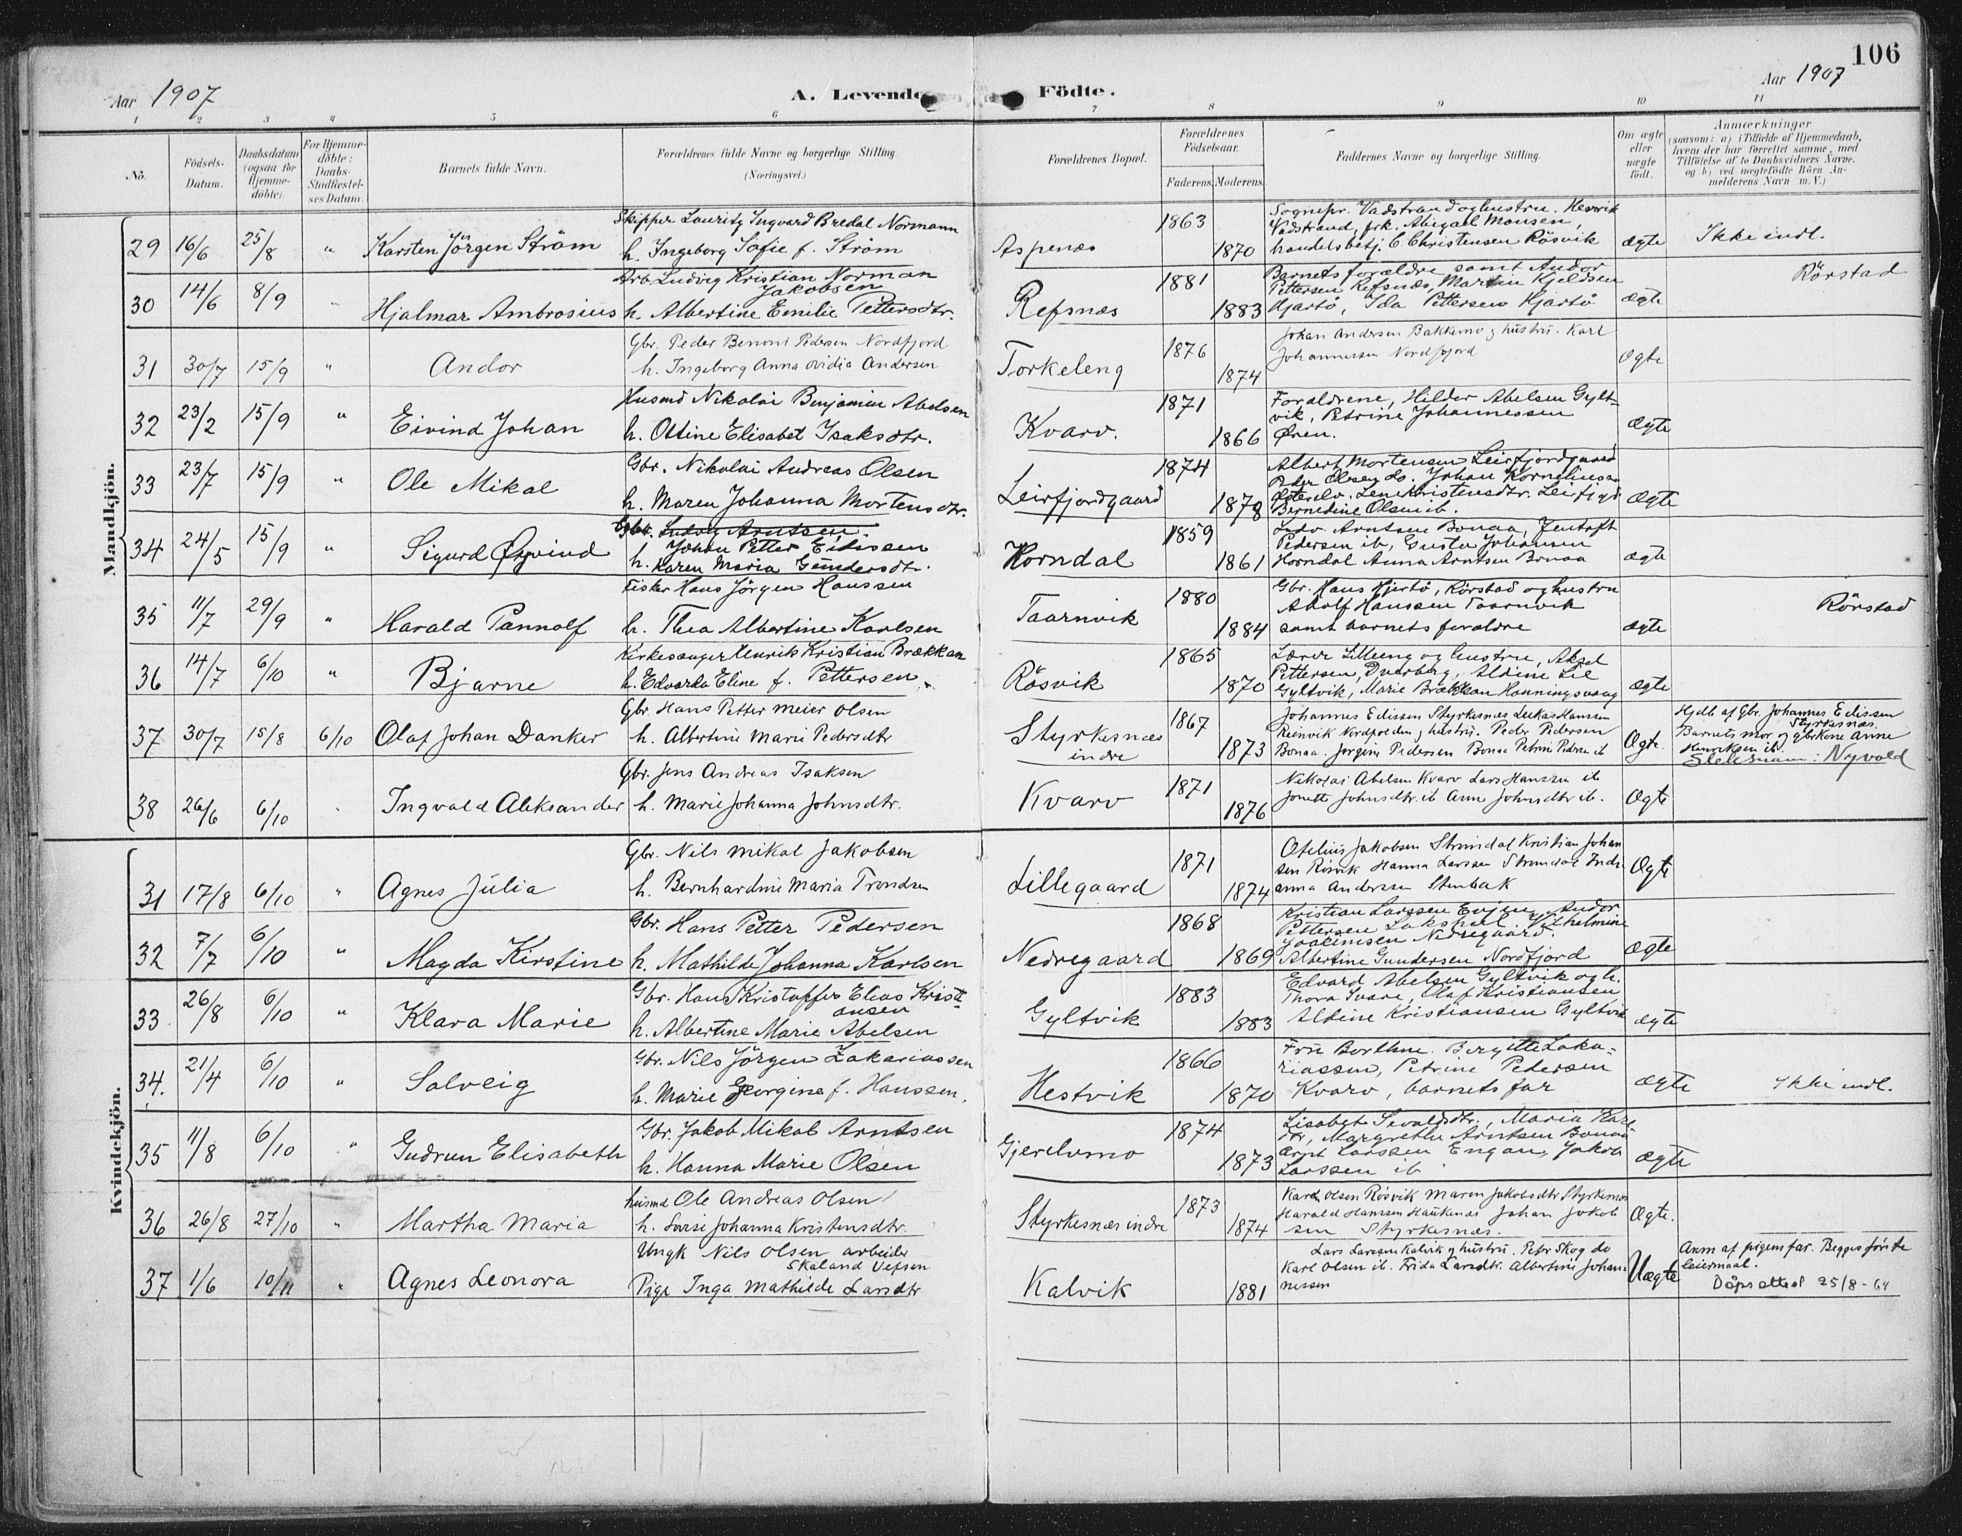 106
Aar 1907
A. Levende Födte.
Aar 1907
1 2 3 4 5 6 7 8 9 10 11
No.
Födsels-Datum.
Daabsdatum (ogsaa for Hjemme-döbte).
For Hjemme-döbte: Daabs-Stadfæstelses Datum.
Barnets fulde Navn.
Forældrenes fulde Navne og borgerlige Stilling (Næringsvei.)
Forældrenes Bopæl.
Forældrenes Födselsaar.
Faderens. Moderens.
Faddernes Navne og borgerlige Stilling.
Om ægte eller uægte födt.
Anmærkninger
(saasom: a) i Tilfælde af Hjemmedaab, hvem der har forrettet samme, med Tilföielse af to Daabsvidners Navne. og b) ved uægtefödte Börn Anmelderens Navn m. V.)
Mandkjön.
29 16/6 25/8 " Karsten Jörgen Ström
Skipper Lauritz Ingvard Bredal Normann
h. Ingeborg Sofie f. Ström
Aspenæs 1863 1870
Sognepr. Vadstrand og hustru. Henrik
Vadstrand, frk. Abigael Monsen,
handelsbetj. C. Christensen Rösvik
ægte Ikke indl.
30 14/6 8/9 " Hjalmar Ambrosius
Arb. Ludvig Kristian Norman
Jakobsen
h. Albertine Emilie Pettersdtr.
Refsnæs 1881 1883
Barnets forældre samt Andor
Pettersen Refsnæs, Martin Kjeldsen
Hjartö, Ida Pettersen Hjartö
ægte Rörstad
31 30/7 15/9 " Andor
Gbr. Peder Benoni Pedersen Nordfjord
h. Ingeborg Anna Ovidia Andersen
Torkeleng 1876 1874
Johan Andersen Bakkemo og hustru. Karl
Johannessen Nordfjord
Ægte
32 23/2 15/9 " Eivind Johan
Husmd Nikolai Benjamin Abelsen
h. Ottine Elisabet Isaksdtr.
Kvarv. 1871 1866
Forældrene, Hilder Abelsen Gylt-
vik, Petrine Johannessen
Øren.
Ægte
33 23/7 15/9 " Ole Mikal
Gbr. Nikolai Andreas Olsen
h. Maren Johanna Mortensdtr.
Leirfjordgaard 1874 1878
Albert Mortensen Leirfjordgaard
Peter Olsen do. Johan Kornelius
Lene Kristensdtr. Leirfjgd
Bernedine Olsen ib.
Ægte
34 24/5 15/9 " Sigurd Øyvind
Gbr. Ludvig Arntsen.
Johan Petter Edissen
h. Karen Maria Gundersdtr.
Horndal 1859 1861
Ludv. Arntsen Bonaa, Jentoft
Pedersen ib, Gusta Johansen
Horndal Anna Arntsen Bonaa
ægte
35 11/7 29/9 " Harald Pannolf
Fisker Hans Jörgen Hanssen
h. Thea Albertine Karlsen
Taarnvik 1880 1884
Gbr. Hans Hjertö, Rörstad og hustru
Adolf Hanssen Taarnvik
samt barnets forældre
ægte Rörstad
36 14/7 6/10 " Bjarne
Kirkesanger Henrik Kristian Brækkan
h. Edvarda Eline f. Pettersen
Rösvik 1865 1870
Lærer Lilleeng og hustru, Aksel
Pettersen, Dverberg, Aldine Lie
Gyltvik, Marie Brækkan Honningsvaag
ægte
37 30/7 15/8 6/10 Olaf Johan Danker
Gbr Hans Petter Meier Olsen
h. Albertine Marie Pedersdtr
Styrkesnæs
indre 1867 1873
Johannes Edissen Styrkesnæs Lukas Hansen
Nordfjorden og hustru. Peder Pedersen
Bonaa. Jörgine Pedersen Bonaa Petrine Pedersen ib
Ægte.
Hjdb af Gbr. Johannes Edissen
Styrkesnæs
Barnets mor og gbrkone Anne
Henriksen ib.
Slektsnavn: Nyvold
38 26/6 6/10 " Ingvald Aleksander
Gbr. Jens Andreas Isaksen
h. Marie Johanna Johnsdtr.
Kvarv 1871 1876
Nikolai Abelsen Kvarv Lars Hanssen ib
Jonette Johnsdtr. ib Anne Johnsdtr ib.
Ægte
Kvindekjön.
31 17/8 6/10 " Agnes Julia
Gbr. Nils Mikal Jakobsen
h. Bernhardine Maria Trondsen
Lillegaard 1871 1874
Ofelius Jakobsen Strindal Kristian Johan
sen Rösvik Hanna Larssen Strindal Indi
anna Anderssen Stenbak
Ægte
32 7/7 6/10 " Magda Kirstine
Gbr. Hans Petter Pedersen
h. Mathilde Johanna Karlsen
Nedregaard 1868 1869
Kristian Larssen Evjen, Andor
Pettersen Lakshol. Vilhelmine
Joakimsen Nedregaard.
Albertine Gundersen Nordfjord
Ægte
33 26/8 6/10 " Klara Marie
Gbr. Hans Kristoffer Elias Kristi-
ansen
h. Albertine Marie Abelsen
Gyltvik 1883 1883
Edvard Abelsen Gyltvik og h.
Thora Svare, Olaf Kristiansen
Aldine Kristiansen Gyltvik
ægte
34. 21/4 6/10 " Solveig
Gbr. Nils Jörgen Zakariassen
h. Marie Georgine f. Hanssen.
Hestvik 1866 1870
Fru Borthne. Bergitte Zaka-
riassen, Petrine Pedersen
Kvarv, barnets far
ægte Ikke indl.
35 11/8 6/10 " Gudrun Elisabeth
Gbr. Jakob Mikal Arntsen
h. Hanna Marie Olsen
Gjerelvmo 1874 1873
Lisabet Sevaldsdtr., Maria Karl-
dtr, Margrethe Arntsen Bonaa
Larssen Engan, Jakob
Larssen ib
ægte
36 26/8 27/10 " Martha Maria
husmd Ole Andreas Olsen
h. Lovise Johanna Kristensdtr.
Styrkesnæs indre 1873 1874
Karen Olsen Rösvik Maren Jakobsdtr Styrkesnæs
Harald Hanssen Haukenæs Johan Jakob
sen Styrkesnæs.
Ægte.
37 1/6 10/11 " Agnes Leonora
Ungk Nils Olsen arbeider
Skaland Vefsen
Pige Inga Mathilde Larsdtr
Kalvik 1881
Lars Larssen Kalvik og hustru. Peter Skog do
Karl Olsen ib. Frida Larsdtr. Albertine Johan-
nessen
Uægte
Anm af pigens far. Begges förste
leiermaal.
Dåpsattest 25/8-64